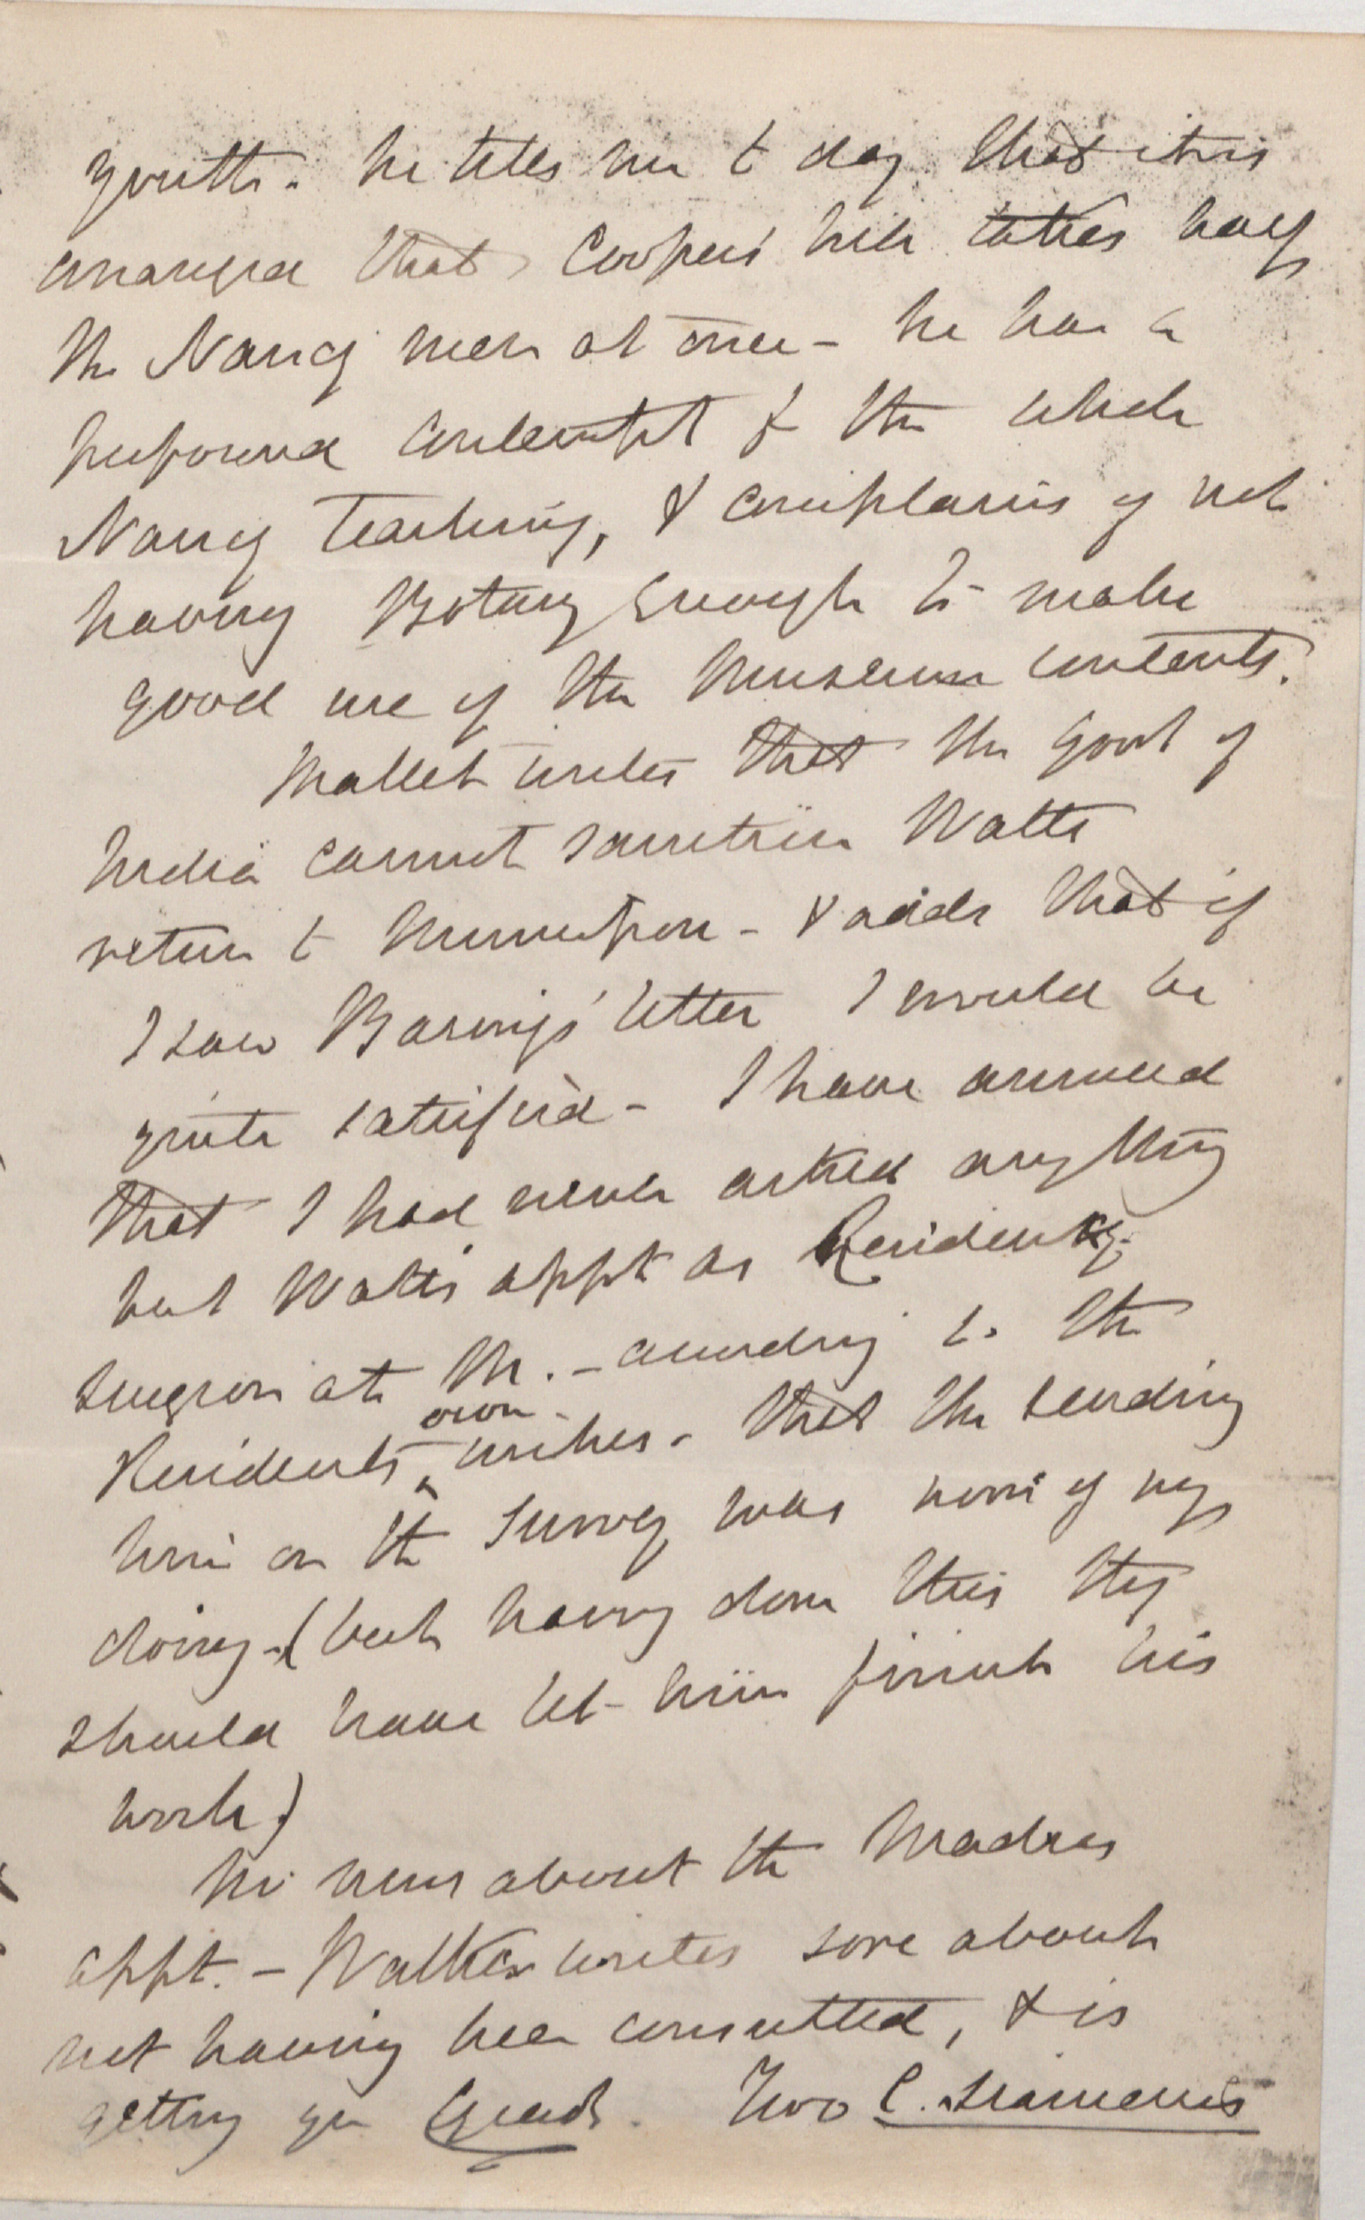 youth. he tells me to day that it is
arranged that Coopers' hill takes half
the Nancy men at once - he has a
profound contempt for the whole
Nancy Teaching, & complains of not
having Botany enough to make
good use of the Museum contents.
Mallet writes that the Govt of
India cannot sanction Watts
return to Munnipore - & adds that if
I saw Barings' letter I would be
quite satisfied - I have answered
that I had never asked anything
but Watts appt as Residency
Surgeon at M. - according to the
Residents own wishes - that the sending
him on the Survey was none of my
doing - (but having done this they
should have let him finish his
work)
No news about the Madras
appt. - Walker writes sore about
not having been consulted, & is
getting yr Quad. Two C.